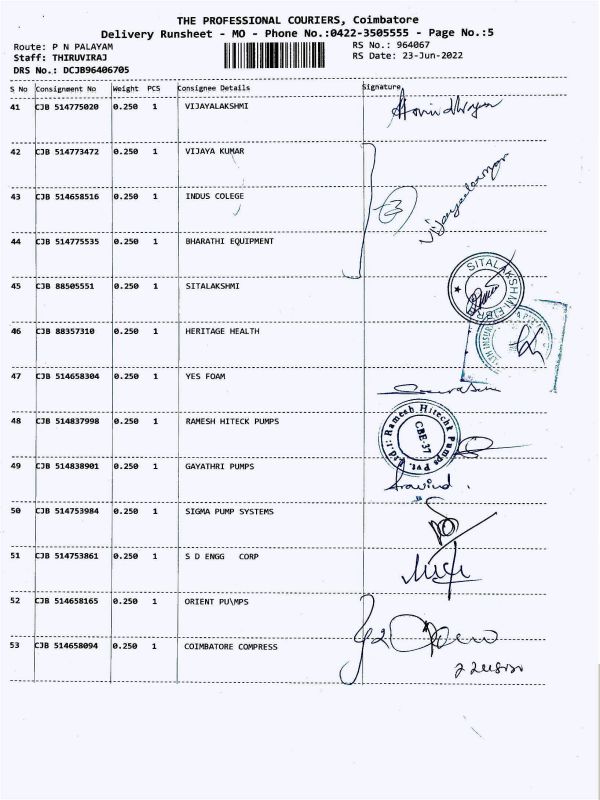 THE PROFESSIONAL COURIERS, Coimbatore
Delivery Runsheet - MO - Phone No.:0422-3505555 - Page No.:5
Route: P N PALAYAM RS No.: 964067
Staff: THIRUVIRAJ RS Date: 23-Jun-2022
DRS No.: DCJB96406705
S No Consignment No Weight PCS Consignee Details Signature
41 CJB 514775020 0.250 1 VIJAYALAKSHMI
42 CJB 514773472 0.250 1 VIJAYA KUMAR
43 CJB 514658516 0.250 1 INDUS COLEGE
3
44 CJB 514775535 0.250 1 BHARATHI EQUIPMENT
45 CJB 88505551 0.250 1 SITALAKSHMI
SITALAKSHMI
46 CJB 88357310 0.250 1 HERITAGE HEALTH
47 CJB 514658304 0.250 1 YES FOAM
48 CJB 514837998 0.250 1 RAMESH HITECK PUMPS
Ramesh Hitecht Pumps Pvt. Ltd.
CBE-37
49 CJB 514838901 0.250 1 GAYATHRI PUMPS
Aravind.
50 CJB 514753984 0.250 1 SIGMA PUMP SYSTEMS
51 CJB 514753861 0.250 1 S D ENGG CORP
52 CJB 514658165 0.250 1 ORIENT PU\MPS
53 CJB 514658094 0.250 1 COIMBATORE COMPRESS